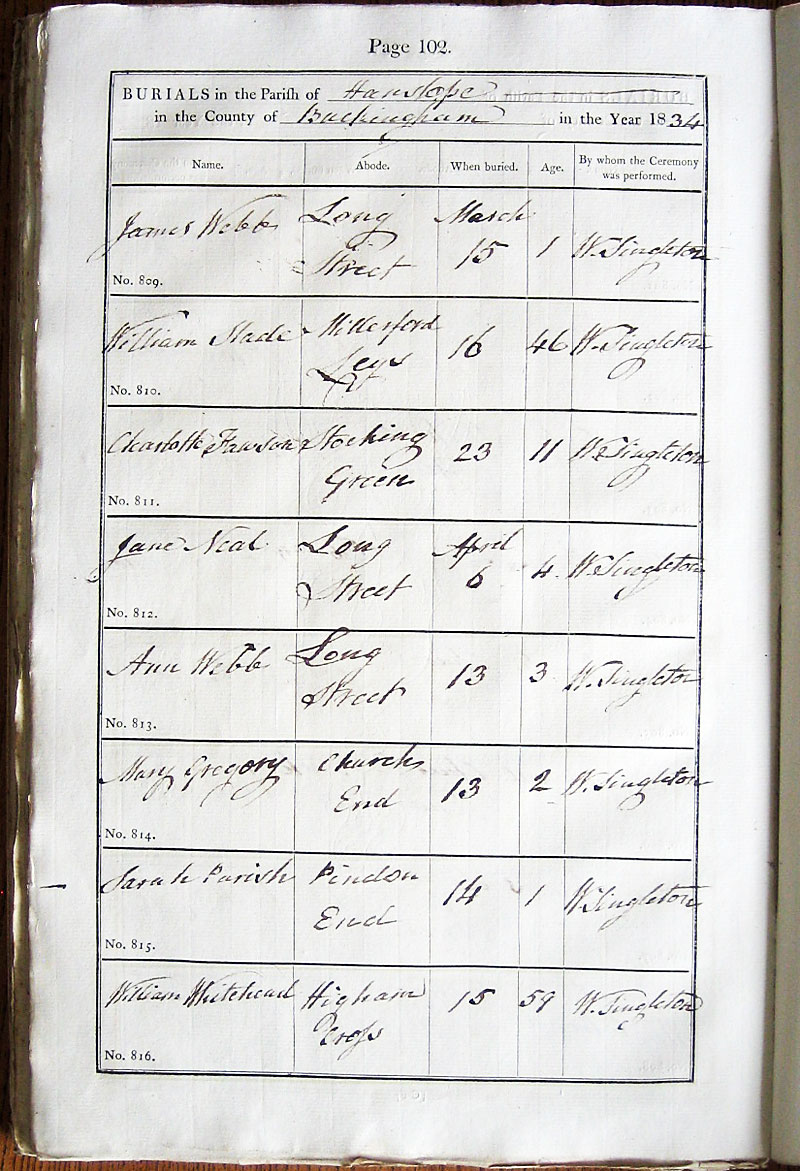 Page 102.
BURIALS in the Parish of Hanslope
in the County of Buckingham in the Year 1834
Name. Abode. When buried. Age. By whom the Ceremony
was performed.
James Webb Long March
Street 15 1 W. Singleton
No. 809.
William Slade Millerford
Leys 16 46 W. Singleton
No. 810.
Charlotte Stocking 23 11 W. Singleton
Green
No. 811.
Jane Neal Long April
Street 6 4 W. Singleton
No. 812.
Ann Webb Long 13 3 W. Singleton
Street
No. 813.
Mary Gregory Church 13 2 W. Singleton
End
No. 814.
Sarah Parish Pindon 14 1 W Singleton
End
No. 815.
William Whitehead Higham 15 59 W. Singleton
Cross
No. 816.